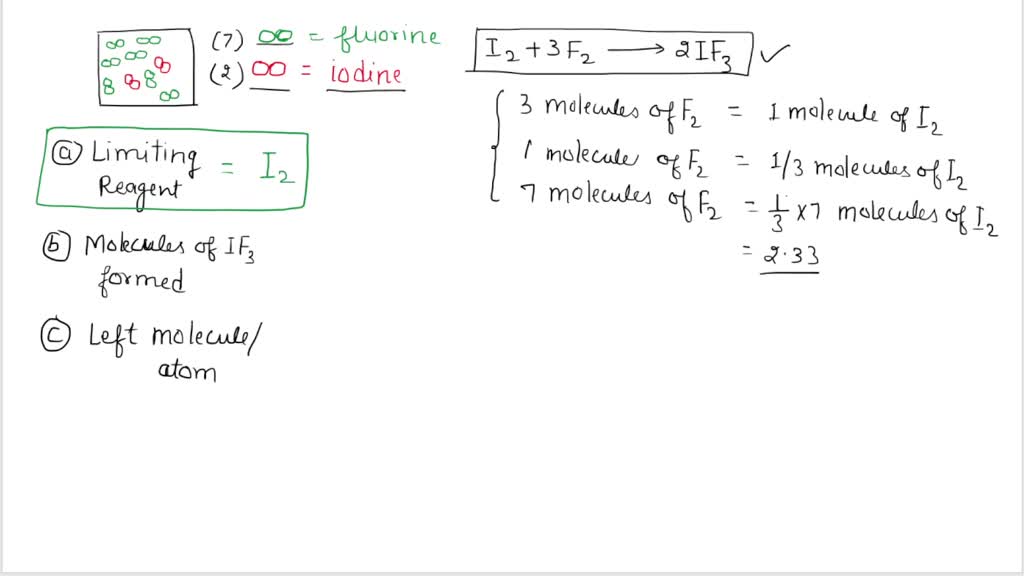 (7) = fluorine
(2) = iodine
I₂ + 3F₂ ⟶ 2IF₃ ✓
3 molecules of F₂ = 1 molecule of I₂
1 molecule of F₂ = 1/3 molecules of I₂
7 molecules of F₂ = 1/3 × 7 molecules of I₂
= 2.33
(a) Limiting Reagent = I₂
(b) Molecules of IF₃
formed
(c) Left molecule/
atom